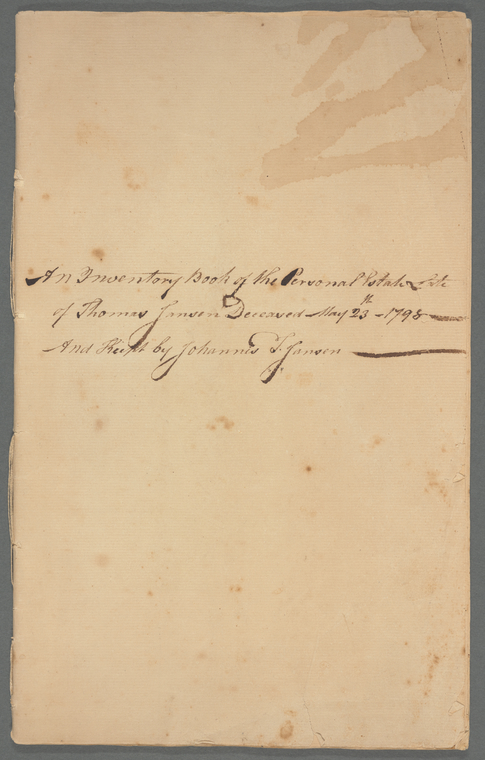 An Inventory Book of the Personal Estate Late
of Thomas Jansen Deceased May 23th 1798
And Keept by Johannis T. Jansen